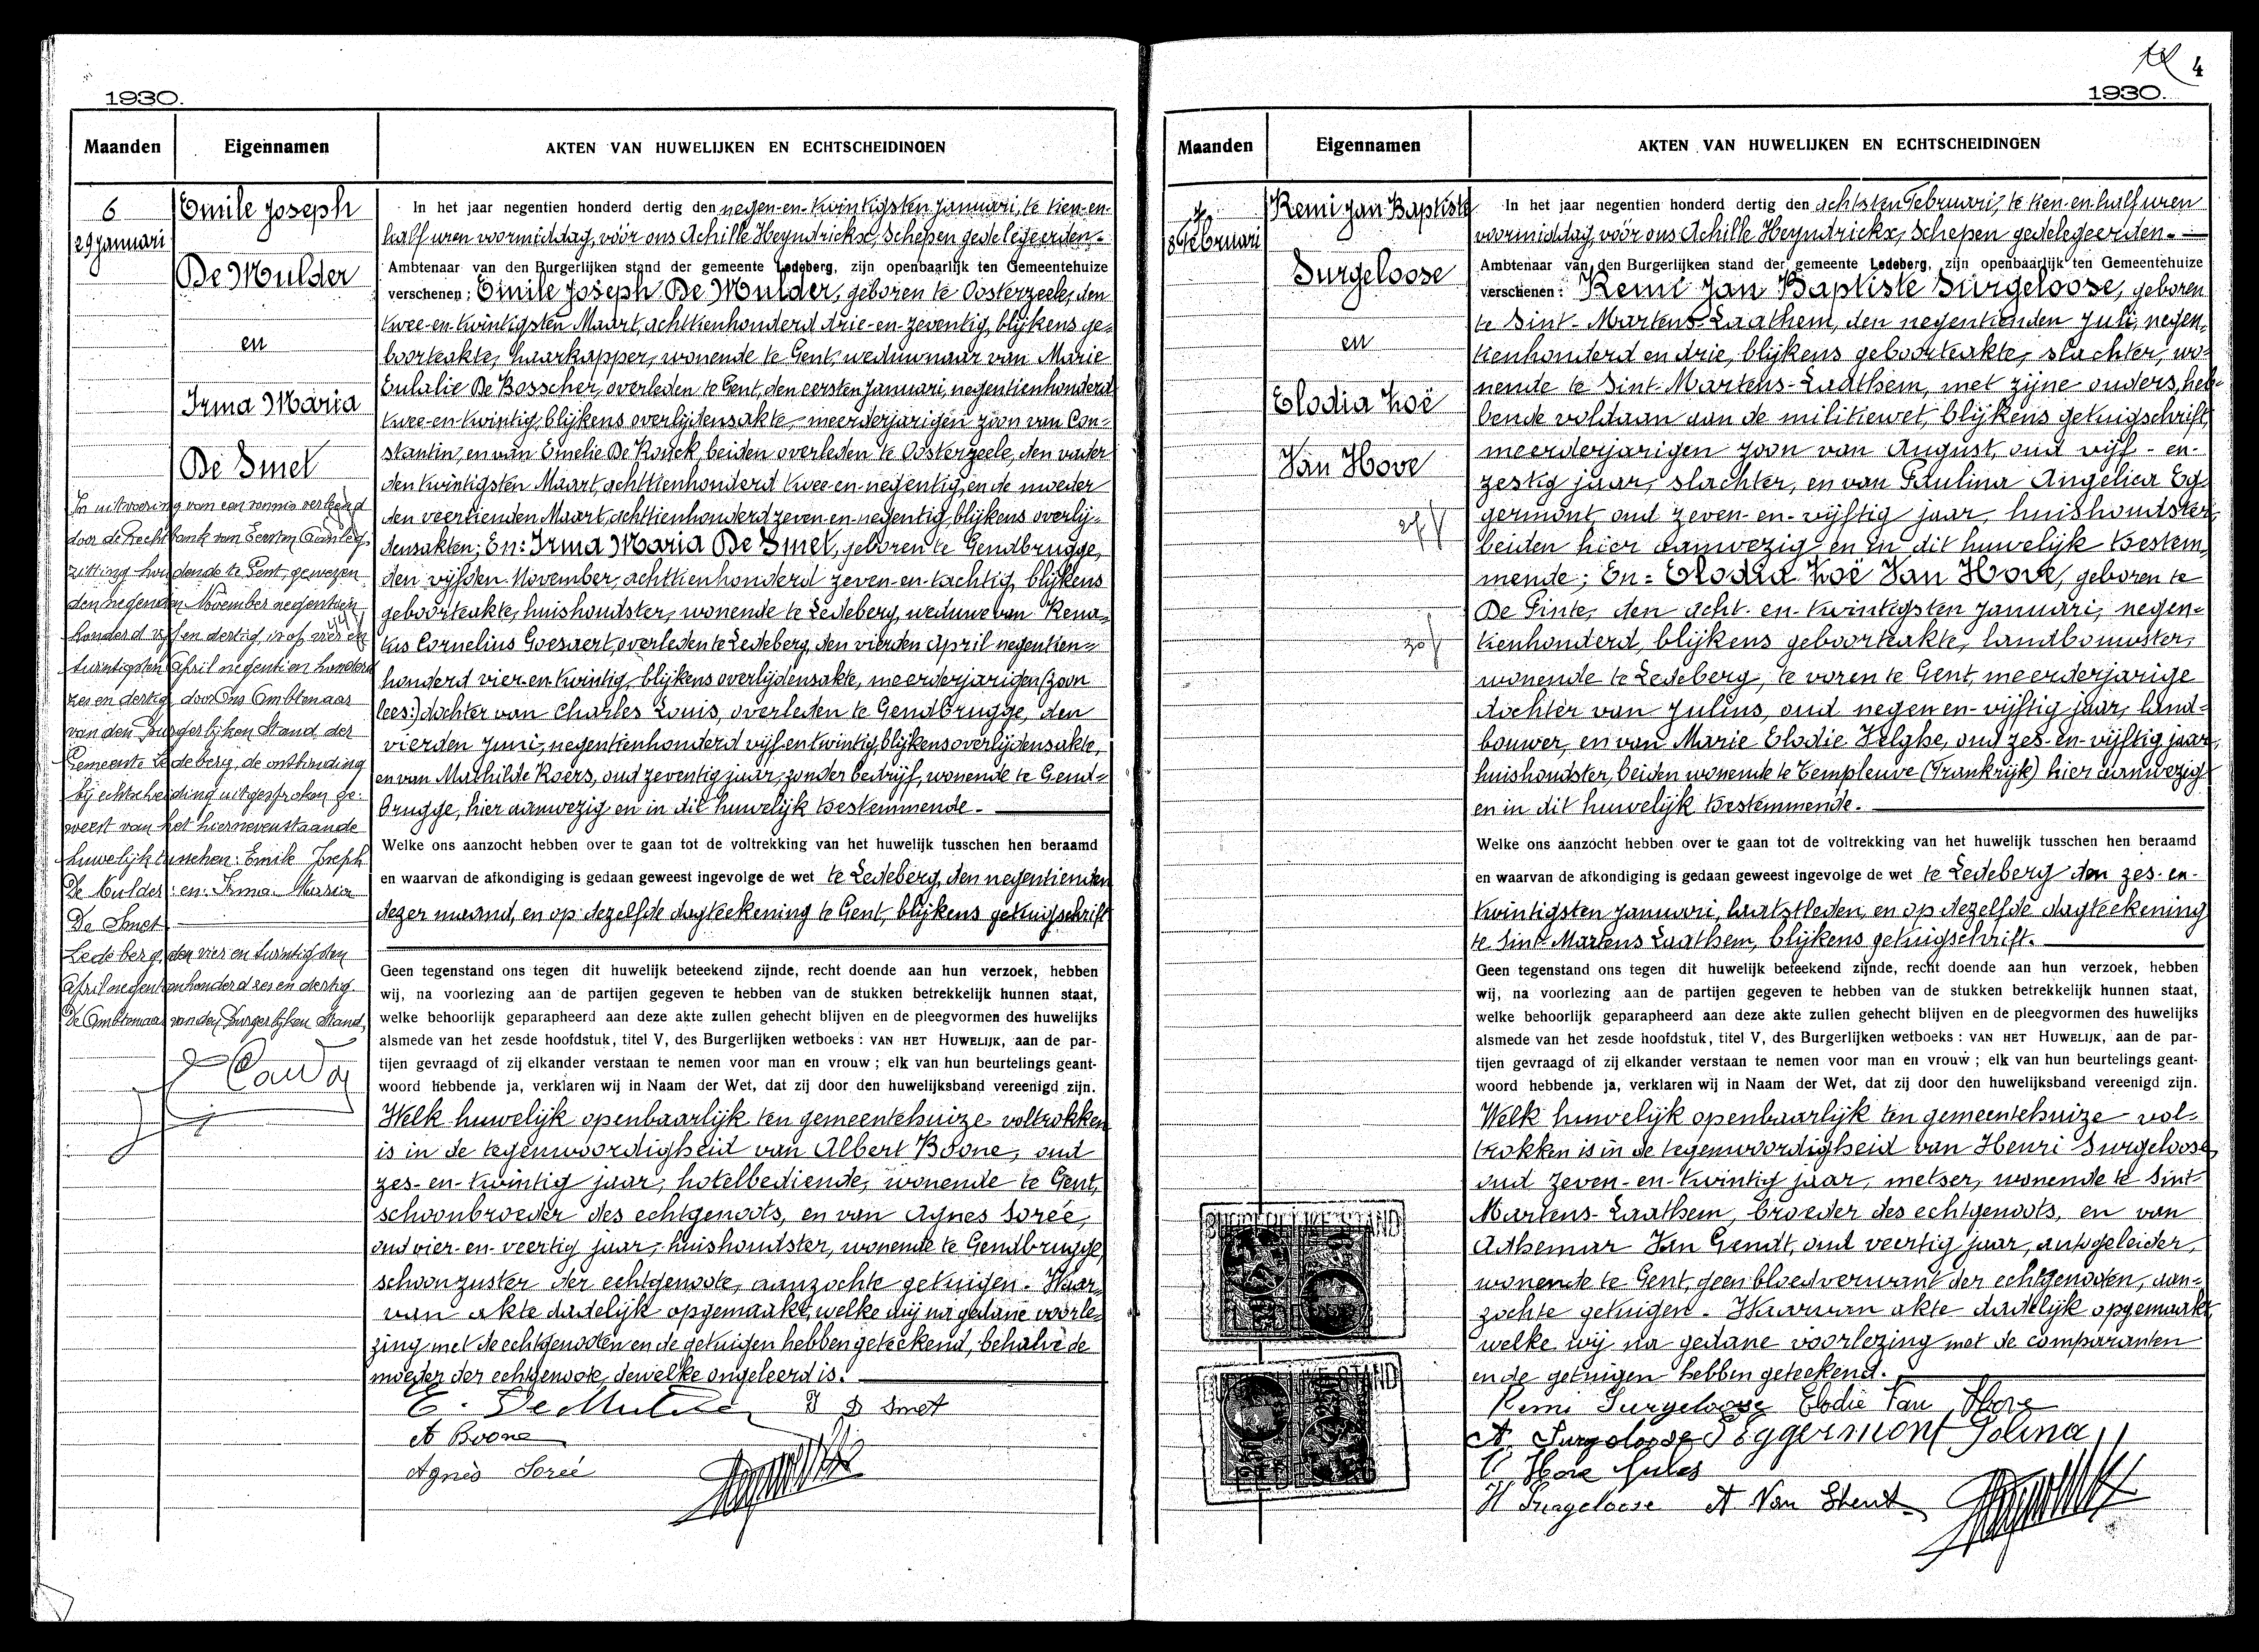 1930.
Maanden
Eigennamen
AKTEN VAN HUWELIJKEN EN ECHTSCHEIDINGEN
6
29 januari
Emile Joseph
De Mulder
en
Irma Maria
De Smet
In uitvoering van een vonnis verleend
door de Rechtbank van Eersten Aanleg
zitting houdende te Gent, gewezen
den negenden November negentien
honderd vijf en dertig, is op vier en
twintigsten April negentien honderd
zes en dertig, door Ons Ambtenaar
van den Burgerlijken Stand der
Gemeente Ledeberg, de ontbinding
bij echtscheiding uitgesproken ge-
weest van het hiernevenstaande
huwelijk tusschen: Emile Joseph
De Mulder en: Irma Maria
De Smet
Ledeberg, den vier en twintigsten
April negentienhonderd zes en dertig.
De Ambtenaar van den Burgerlijken Stand,
In het jaar negentien honderd dertig den negen-en-twintigsten Januari, te tien-en-
half uren voormiddag, vóór ons Achille Heyndrickx, Schepen gedelegeerden.-
Ambtenaar van den Burgerlijken stand der gemeente Ledeberg, zijn openbaarlijk ten Gemeentehuize
verschenen : Emile Joseph De Mulder, geboren te Oosterzeele, den
twee-en-twintigsten Maart, achttienhonderd drie-en-zeventig, blijkens ge-
boorteakte, haarkapper, wonende te Gent, weduwnaar van Marie
Eulalie De Bosscher, overleden te Gent, den eersten Januari, negentienhonderd
twee-en-twintig, blijkens overlijdensakte, meerderjarigen zoon van Con-
stantin, en van Emelie De Kouck, beiden overleden te Oosterzeele, den vader
den twintigsten Maart, achttienhonderd twee-en-negentig, en de moeder
den veertienden Maart, achttienhonderd zeven-en-negentig, blijkens overlij-
densakten; En: Irma Maria De Smet, geboren te Gendbrugge,
den vijfden November, achttienhonderd zeven-en-tachtig, blijkens
geboorteakte, huishoudster, wonende te Ledeberg, weduwe van Rena-
tus Cornelius Goesaert, overleden te Ledeberg, den vierden April negentien-
honderd vier-en-twintig, blijkens overlijdensakte, meerderjarigen (zoon
lees:) dochter van Charles Louis, overleden te Gendbrugge, den
vierden Juni, negentienhonderd vijf en twintig, blijkens overlijdensakte,
en van Mathilde Roers, oud zeventig jaar, zonder bedrijf, wonende te Gend-
brugge, hier aanwezig en in dit huwelijk toestemmende.-
Welke ons aanzocht hebben over te gaan tot de voltrekking van het huwelijk tusschen hen beraamd
en waarvan de afkondiging is gedaan geweest ingevolge de wet te Ledeberg, den negentienden
dezer maand, en op dezelfde dagteekening te Gent, blijkens getuigschrift
Geen tegenstand ons tegen dit huwelijk beteekend zijnde, recht doende aan hun verzoek, hebben
wij, na voorlezing aan de partijen gegeven te hebben van de stukken betrekkelijk hunnen staat,
welke behoorlijk geparapheerd aan deze akte zullen gehecht blijven en de pleegvormen des huwelijks
alsmede van het zesde hoofdstuk, titel V, des Burgerlijken wetboeks : VAN HET HUWELIJK, aan de par-
tijen gevraagd of zij elkander verstaan te nemen voor man en vrouw ; elk van hun beurtelings geant-
woord hebbende ja, verklaren wij in Naam der Wet, dat zij door den huwelijksband vereenigd zijn.
Welk huwelijk openbaarlijk ten gemeentehuize voltrokken
is in de tegenwoordigheid van Albert Boone, oud
zes-en-twintig jaar, hotelbediende, wonende te Gent,
schoonbroeder des echtgenoots, en van Agnes Sorée,
oud vier-en-veertig jaar, huishoudster, wonende te Gendbrugge,
schoonzuster der echtgenoote, aanzochte getuigen. Waar-
van akte dadelijk opgemaakt, welke wij na gedane voorle-
zing met de echtgenooten en de getuigen hebben geteekend, behalve de
moeder der echtgenoote, dewelke ongeleerd is.
E. De Mulder I D Smet
A Boone
Agnès Sorée
4
1930.
Maanden
Eigennamen
AKTEN VAN HUWELIJKEN EN ECHTSCHEIDINGEN
7
8 Februari
Remi Jan Baptiste
Surgeloose
en
Elodia Zoë
Van Hove
In het jaar negentien honderd dertig den achtsten Februari, te tien-en-half uren
voormiddag, vóór ons Achille Heyndrickx, Schepen gedelegeerden.-
Ambtenaar van den Burgerlijken stand der gemeente Ledeberg, zijn openbaarlijk ten Gemeentehuize
verschenen : Remi Jan Baptiste Surgeloose, geboren
te Sint-Martens-Laathem, den negentienden Juli, negen-
tienhonderd en drie, blijkens geboorteakte, slachter, wo-
nende te Sint-Martens-Laathem, met zijne ouders, heb-
bende voldaan aan de militiewet, blijkens getuigschrift,
meerderjarigen zoon van August, oud vijf-en-
zestig jaar, slachter, en van Paulina Angelica Eg-
germont, oud zeven-en-vijftig jaar, huishoudster,
beiden hier aanwezig en in dit huwelijk toestem-
mende; En: Elodia Zoë Van Hove, geboren te
De Pinte, den acht-en-twintigsten Januari, negen-
tienhonderd, blijkens geboorteakte, landbouwster,
wonende te Ledeberg, te voren te Gent, meerderjarige
dochter van Julius, oud negen en-vijftig jaar, land-
bouwer, en van Marie Elodie Velghe, oud zes-en-vijftig jaar,
huishoudster, beiden wonende te Templeuve (Frankrijk) hier aanwezig
en in dit huwelijk toestemmende.-
Welke ons aanzocht hebben over te gaan tot de voltrekking van het huwelijk tusschen hen beraamd
en waarvan de afkondiging is gedaan geweest ingevolge de wet te Ledeberg den zes-en-
twintigsten Januari, laatstleden, en op dezelfde dagteekening
te Sint-Martens Laathem, blijkens getuigschrift.
Geen tegenstand ons tegen dit huwelijk beteekend zijnde, recht doende aan hun verzoek, hebben
wij, na voorlezing aan de partijen gegeven te hebben van de stukken betrekkelijk hunnen staat,
welke behoorlijk geparapheerd aan deze akte zullen gehecht blijven en de pleegvormen des huwelijks
alsmede van het zesde hoofdstuk, titel V, des Burgerlijken wetboeks : VAN HET HUWELIJK, aan de par-
tijen gevraagd of zij elkander verstaan te nemen voor man en vrouw ; elk van hun beurtelings geant-
woord hebbende ja, verklaren wij in Naam der Wet, dat zij door den huwelijksband vereenigd zijn.
Welk huwelijk openbaarlijk ten gemeentehuize vol-
trokken is in de tegenwoordigheid van Henri Surgeloose,
oud zeven-en-twintig jaar, metser, wonende te Sint
Martens-Laathem, broeder des echtgenoots, en van
Adhemar Van Gendt, oud veertig jaar, autogeleider,
wonende te Gent, geen bloedverwant der echtgenooten, aan-
zochte getuigen. Waarvan akte dadelijk opgemaakt,
welke wij na gedane voorlezing met de comparanten
en de getuigen hebben geteekend.
Remi Surgeloose Elodie Van Hove
A. Surgeloose Eggermont Polina
V Hove Jules
H Surgeloose A Van Ghent